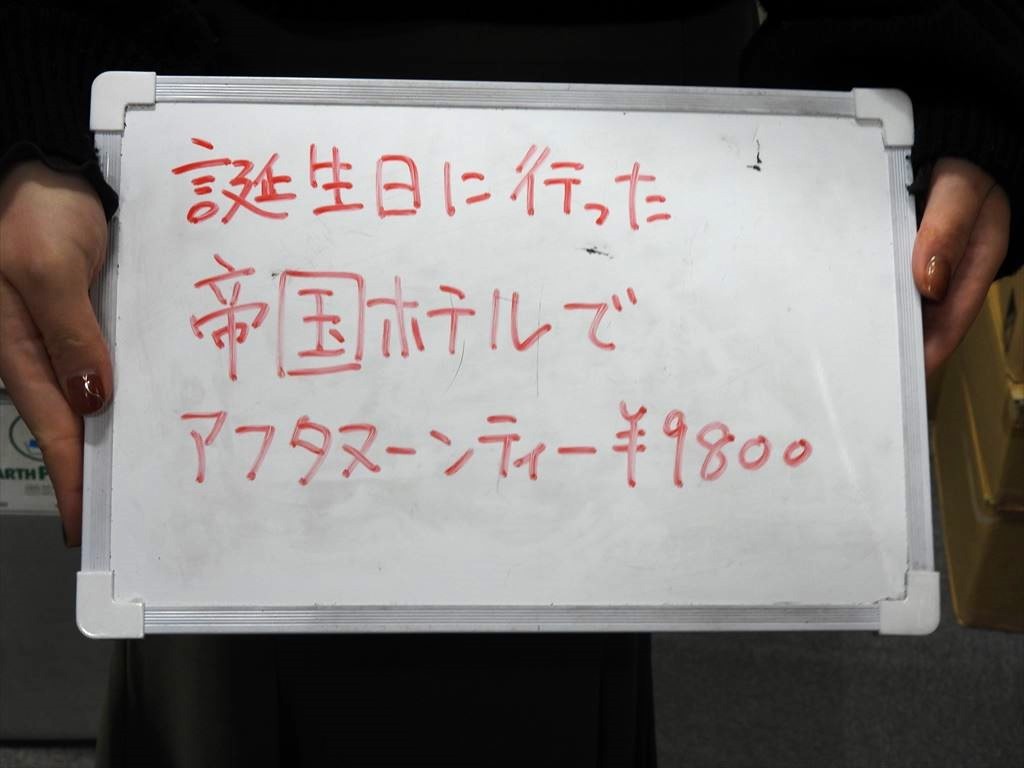 誕生日に行った
帝国ホテルで
アフタヌーンティー¥9800
ARTH P